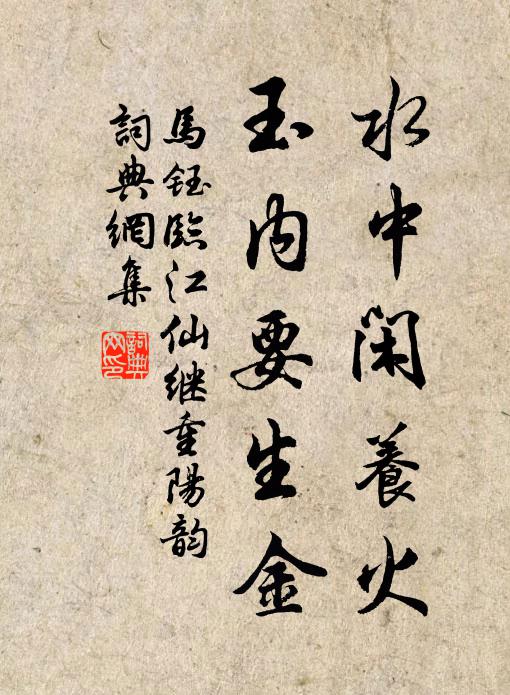 水中閑養火
玉内要生金
馬鈺臨江仙继重陽韵
詞典網集
詞典网印